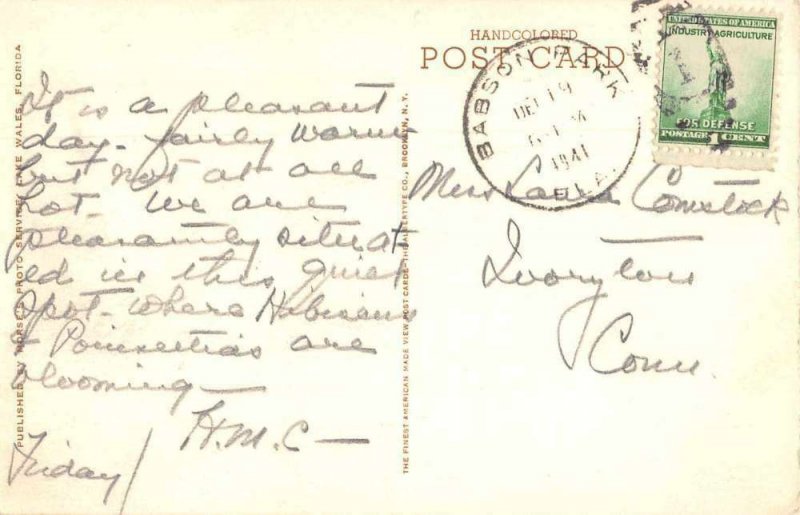 HANDCOLORED
POST CARD
BABSON PARK
DEC 19
1941
FLA.
UNITED STATES OF AMERICA
INDUSTRY AGRICULTURE
FOR DEFENSE
POSTAGE 1 CENT
It is a pleasant
day - fairly warm
but not at all
hot - We are
pleasantly situat
ed in this quiet
spot - where Hibiscus
& Poinsettias are
blooming -
H.M.C -
Friday /
Miss Laura Comstock
Ivoryton
Conn.
PUBLISHED BY MORSE'S PHOTO SERVICE, LAKE WALES, FLORIDA
THE FINEST AMERICAN MADE VIEW POST CARDS - THE ALBERTYPE CO., BROOKLYN, N.Y.